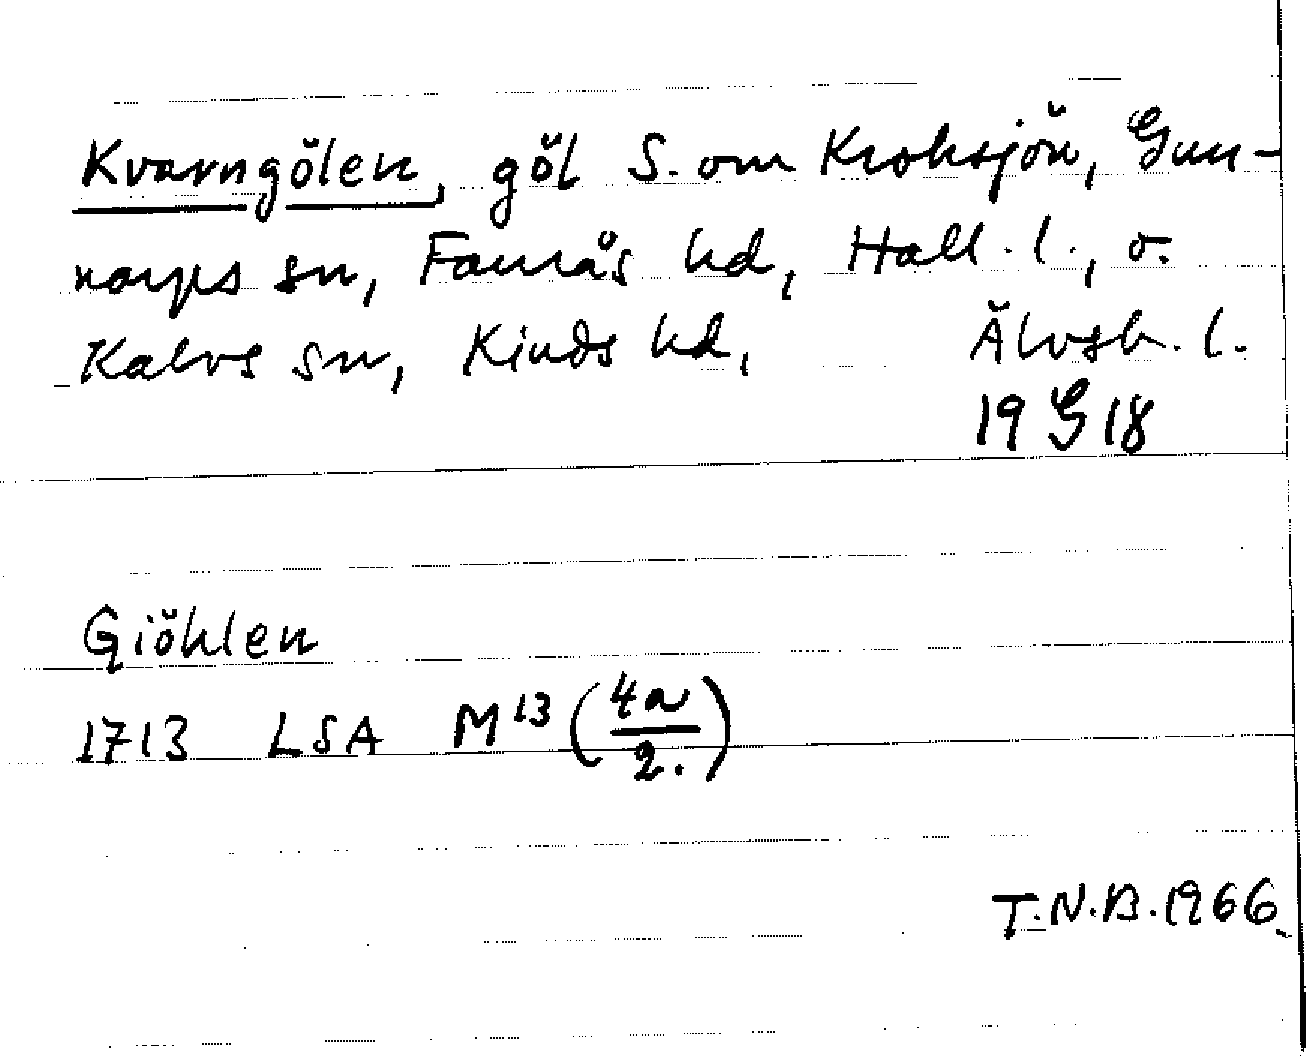 Kvarngölen, göl S. om Kroksjön, Gun-
narps sn, Faurås hd, Hall. l., o.
Kalvs sn, Kinds hd, Älvsb. l.
19 G 18
Giöhlen
1713 LSA M¹³ (4a/2.)
T.N.B. 1966